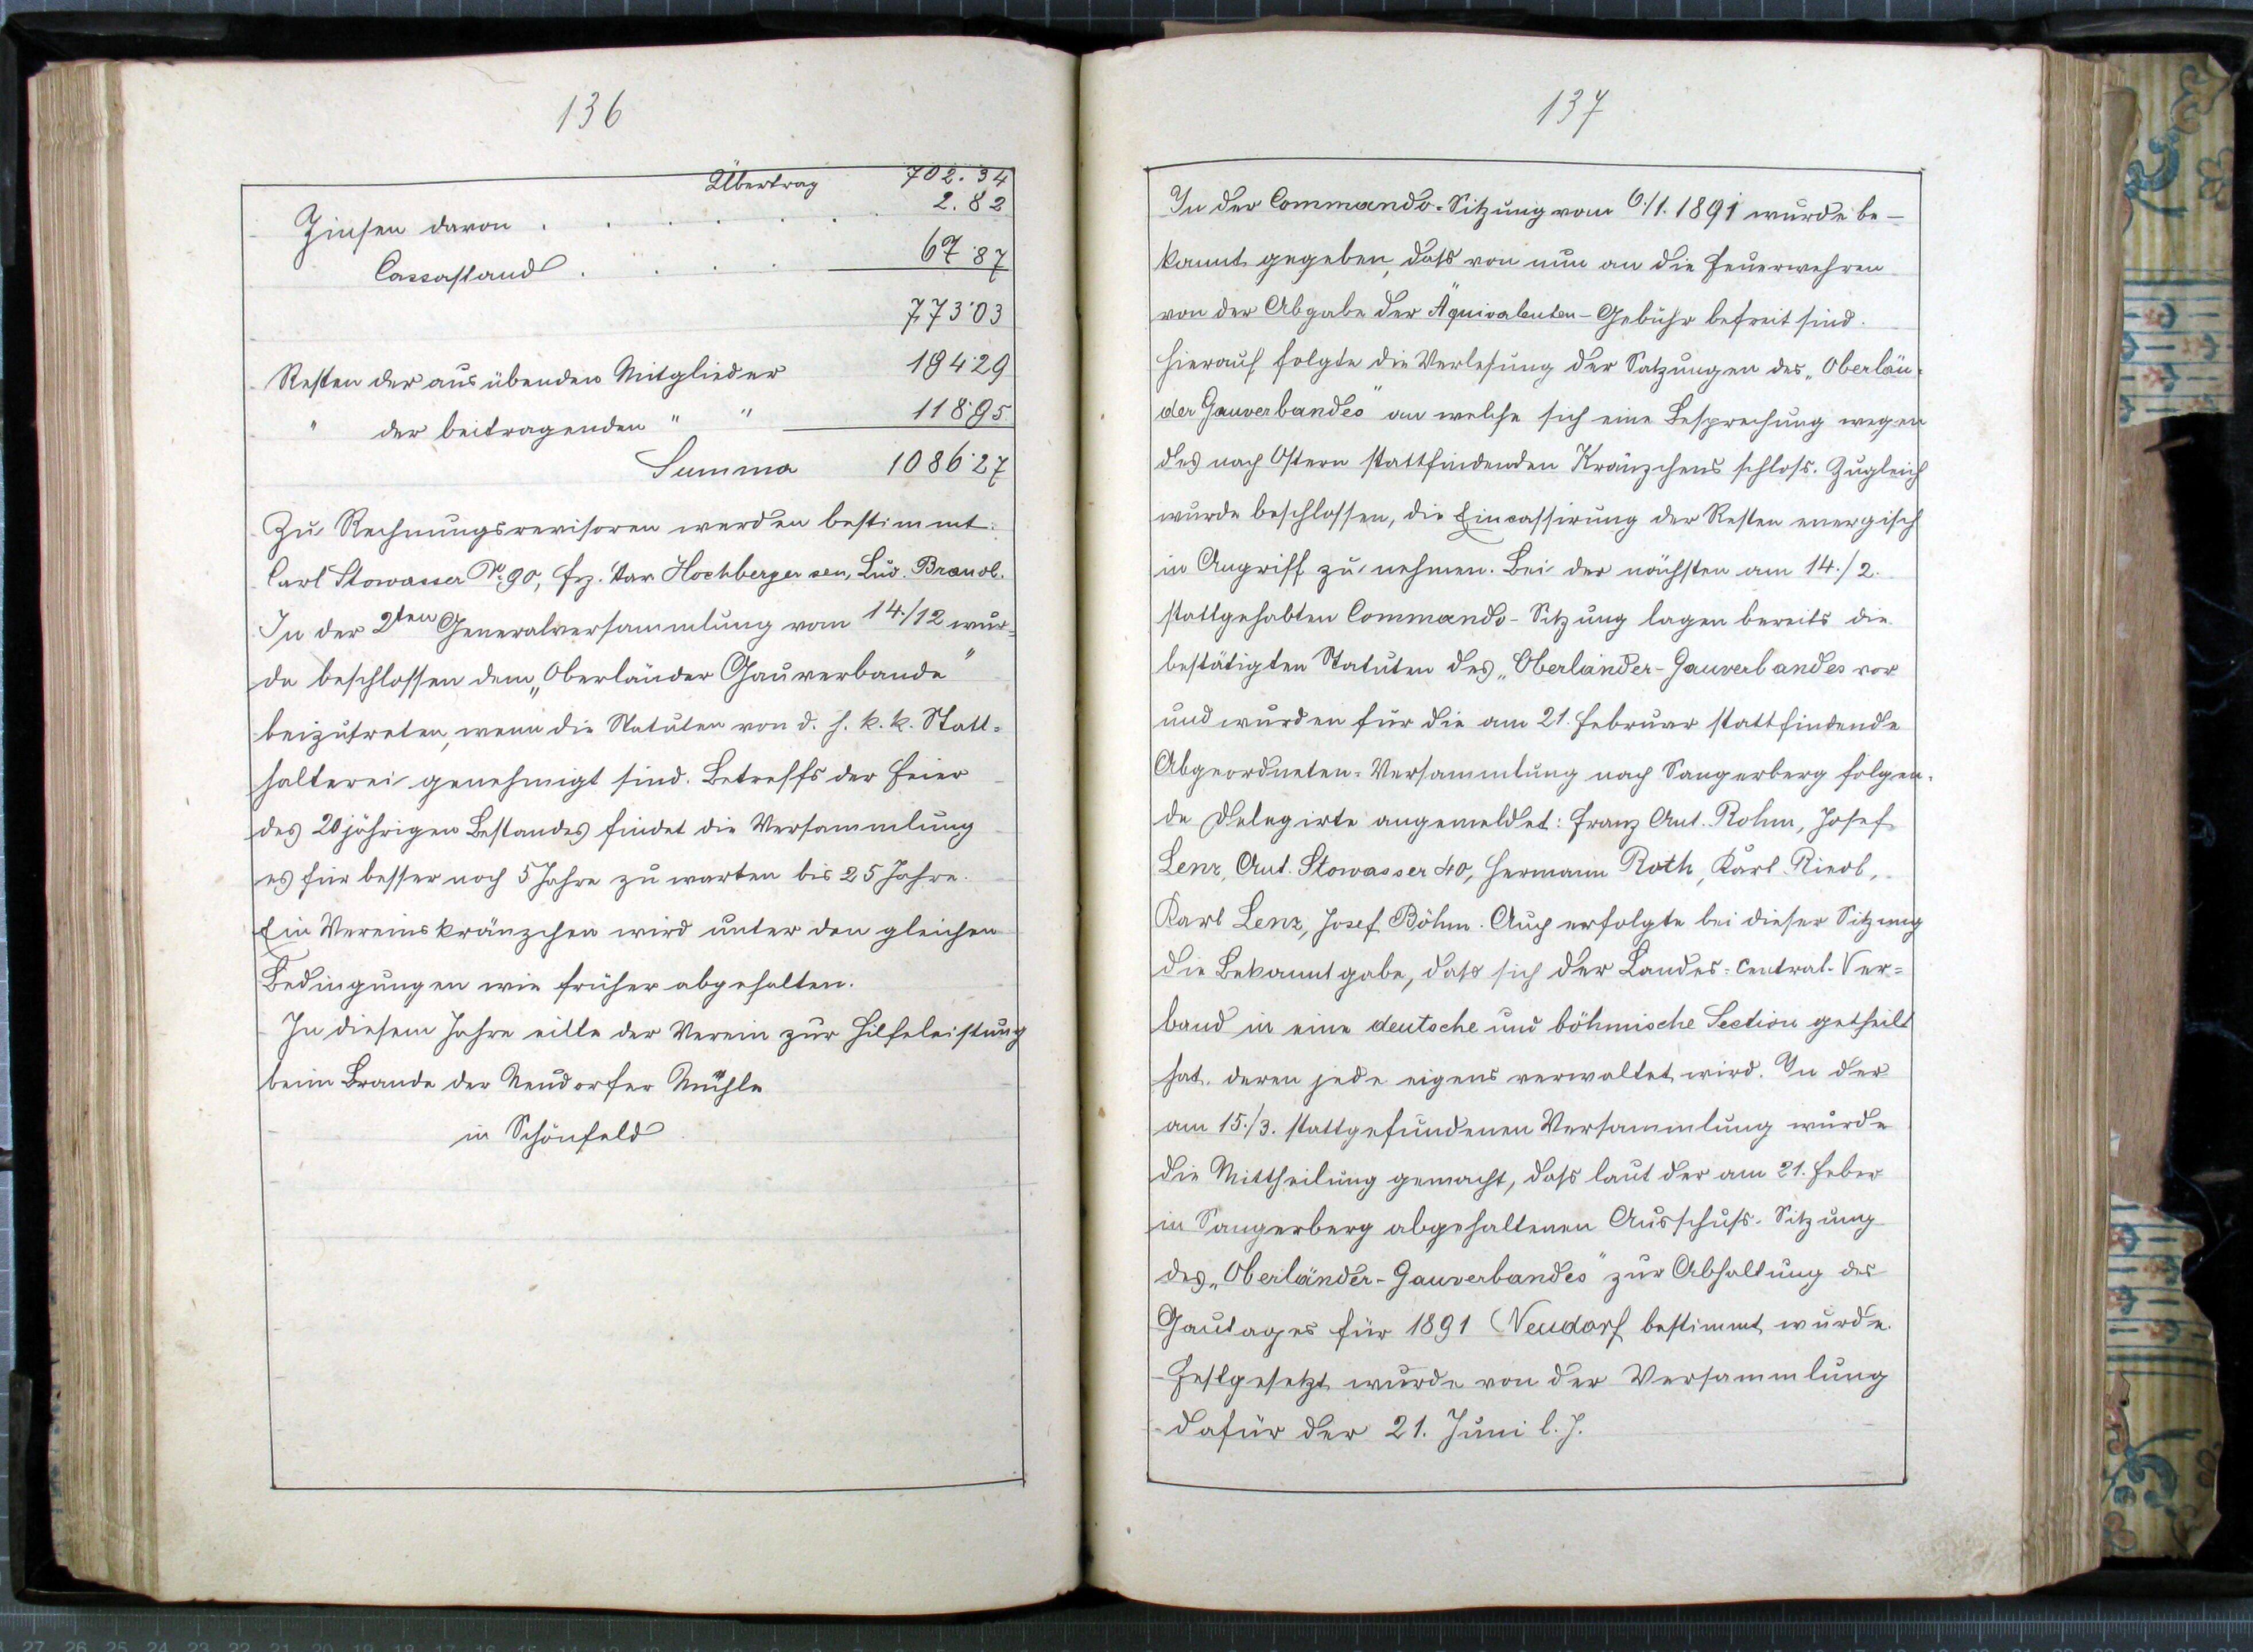 136
Übertrag 702.34
Zinsen davon . . . . . . . 2.82
Cassastand . . . . 67.87
773.03
Resten der ausübenden Mitglieder 194.29
" der beitragenden " " 118.95
Summa 1086.27
Zu Rechnungsrevisoren werden bestimmt:
Carl Stowasser No. 90, Frz. Hochberger sen, Lud. Brandl.
In der 2ten Generalversammlung vom 14./12 wur=
de beschlossen dem „Oberländer Gauverbande"
beizutreten, wenn die Statuten von d. h. k. k. Statt=
halterei genehmigt sind. Betreffs der Feier
des 20jährigen Bestandes findet die Versammlung
es für besser noch 5 Jahre zu warten bis 25 Jahre.
Ein Vereinskränzchen wird unter den gleichen
Bedingungen wie früher abgehalten.
In diesem Jahre eilte der Verein zur Hilfeleistung
beim Brande der Neudorfer Mühle
in Schönfeld
137
In der Commando-Sitzung vom 6./1. 1891 wurde be-
kannt gegeben, dass von nun an die Feuerwehren
von der Abgabe der Äquivalenten-Gebühr befreit sind.
Hierauf folgte die Verlesung der Satzungen des „Oberlän=
der Gauverbandes" an welche sich eine Besprechung wegen
des nach Ostern stattfindenden Kränzchens schloss. Zugleich
wurde beschlossen, die Eincassirung der Resten energisch
in Angriff zu nehmen. Bei der nächsten am 14./2.
stattgehabten Commando-Sitzung lagen bereits die
bestätigten Statuten des „Oberländer-Gauverbandes vor
und wurden für die am 21. Februar stattfindende
Abgeordneten=Versammlung nach Sangerberg folgen=
de Delegirte angemeldet: Franz Ant. Rohm, Josef
Lenz, Ant. Stowasser 40, Hermann Roth, Karl Riedl,
Karl Lenz, Josef Böhm. Auch erfolgte bei dieser Sitzung
die Bekanntgabe, dass sich der Landes=Central-Ver=
band in eine deutsche und böhmische Section getheilt
hat, deren jede eigens verwaltet wird. In der
am 15./3. stattgefundenen Versammlung wurde
die Mittheilung gemacht, dass laut der am 21. Feber
in Sangerberg abgehaltenen Ausschuss-Sitzung
des „Oberländer-Gauverbandes" zur Abhaltung des
Gautages für 1891 Neudorf bestimmt wurde.
Festgesetzt wurde von der Versammlung
dafür der 21. Juni l. J.